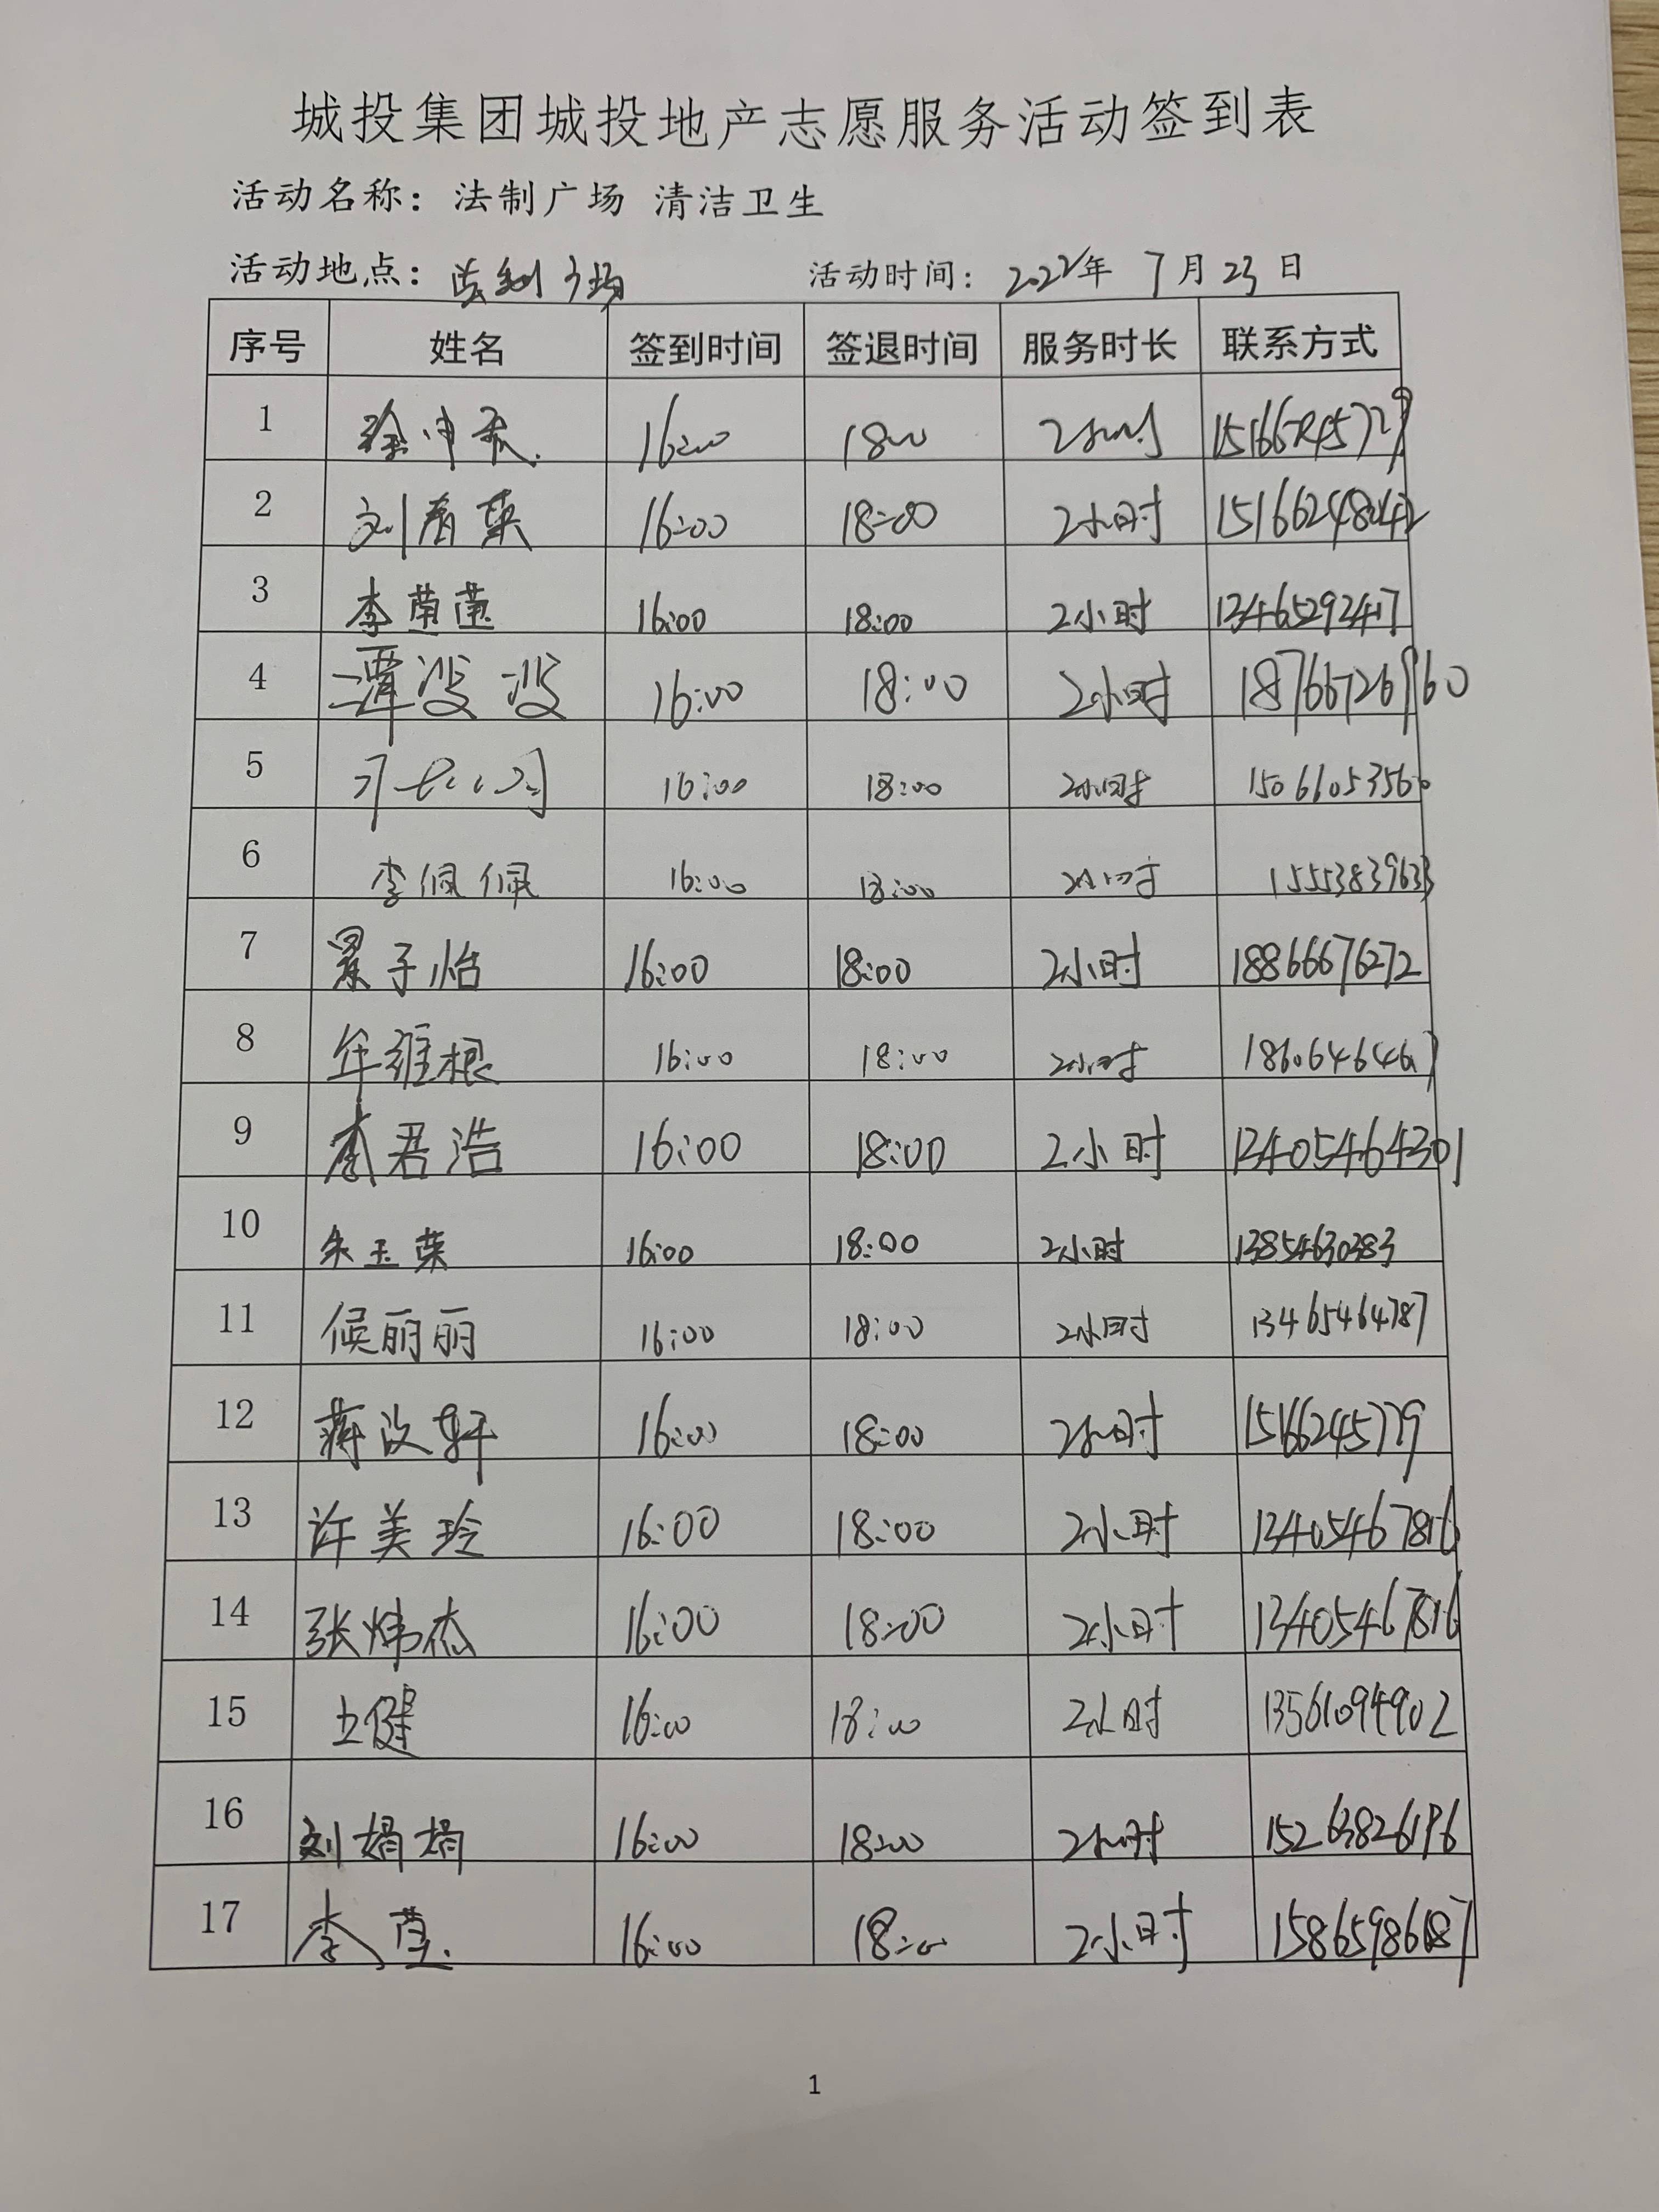 城投集团城投地产志愿服务活动签到表
活动名称：法制广场 清洁卫生
活动地点：法制广场 活动时间：2022年 7月 23 日
序号 姓名 签到时间 签退时间 服务时长 联系方式
1 16:00 18:00 2小时
2 刘春荣 16:00 18:00 2小时 15166248042
3 李莺莺 16:00 18:00 2小时 13465292417
4 谭 16:00 18:00 2小时 18766726960
5 16:00 18:00 2小时 15066053560
6 李佩佩 16:00 18:00 2小时 15553839633
7 景子怡 16:00 18:00 2小时 18866676272
8 年维根 16:00 18:00 2小时
9 李君浩 16:00 18:00 2小时 13405464301
10 朱玉荣 16:00 18:00 2小时 13854630383
11 候丽丽 16:00 18:00 2小时 13465464787
12 蒋汶轩 16:00 18:00 2小时
13 许美玲 16:00 18:00 2小时 13405467816
14 张炜杰 16:00 18:00 2小时 13405467816
15 王健 16:00 18:00 2小时 13561094902
16 刘娟娟 16:00 18:00 2小时 15263826196
17 李莹 16:00 18:00 2小时 15865986187
1